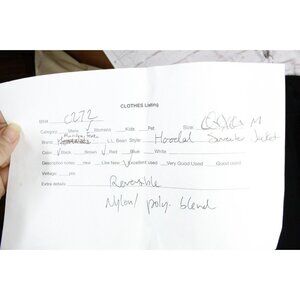 CLOTHES Listing
BIN# C272
Category: Mens ✓ Womens Kids Pet Size: M
Brand: L.L. Bean Style: Hooded Sweater Jacket
Color: ✓ Black Brown ✓ Red Blue White
Description notes: new Like New ✓ Excellent used Very Good Used Good used
Vintage: yes
Extra details: Reversible
Nylon/ poly. blend